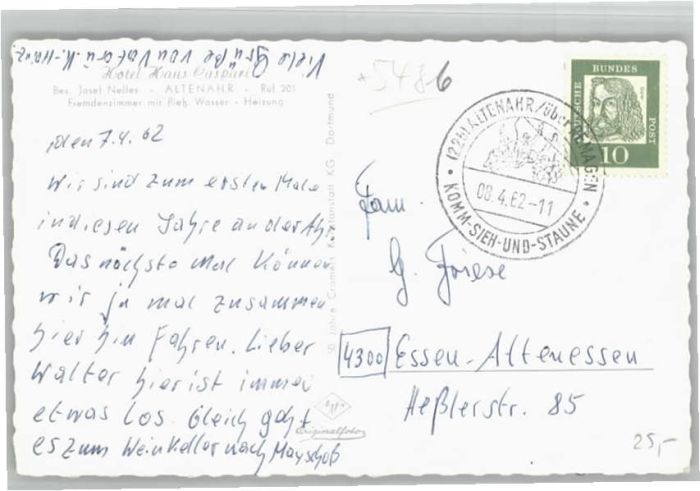 Viele Grüße von Vater u. K.-Heinz
Hotel Haus Caspari
Bes. Josef Nelles - ALTENAHR - Ruf 201
Fremdenzimmer mit fließ. Wasser - Heizung
den 7.4.62
Wir sind zum ersten Male
in diesen Jahre an der Ahr
Das nächste mal können
wir ja mal zusammen
hier hin Fahren. Lieber
Walter hier ist immer
etwas los. Gleich geht
es zum Weinkeller nach Mayschoß
50 Jahre Cramers Kunstanstalt KG Dortmund
Agfa
Originalfoto
+5486
(22b) ALTENAHR/über REMAGEN
08.4.62-11
KOMM-SIEH-UND-STAUNE
DEUTSCHE BUNDES POST
10
Fam.
G. Friese
4300 Essen-Altenessen
Heßlerstr. 85
25,-